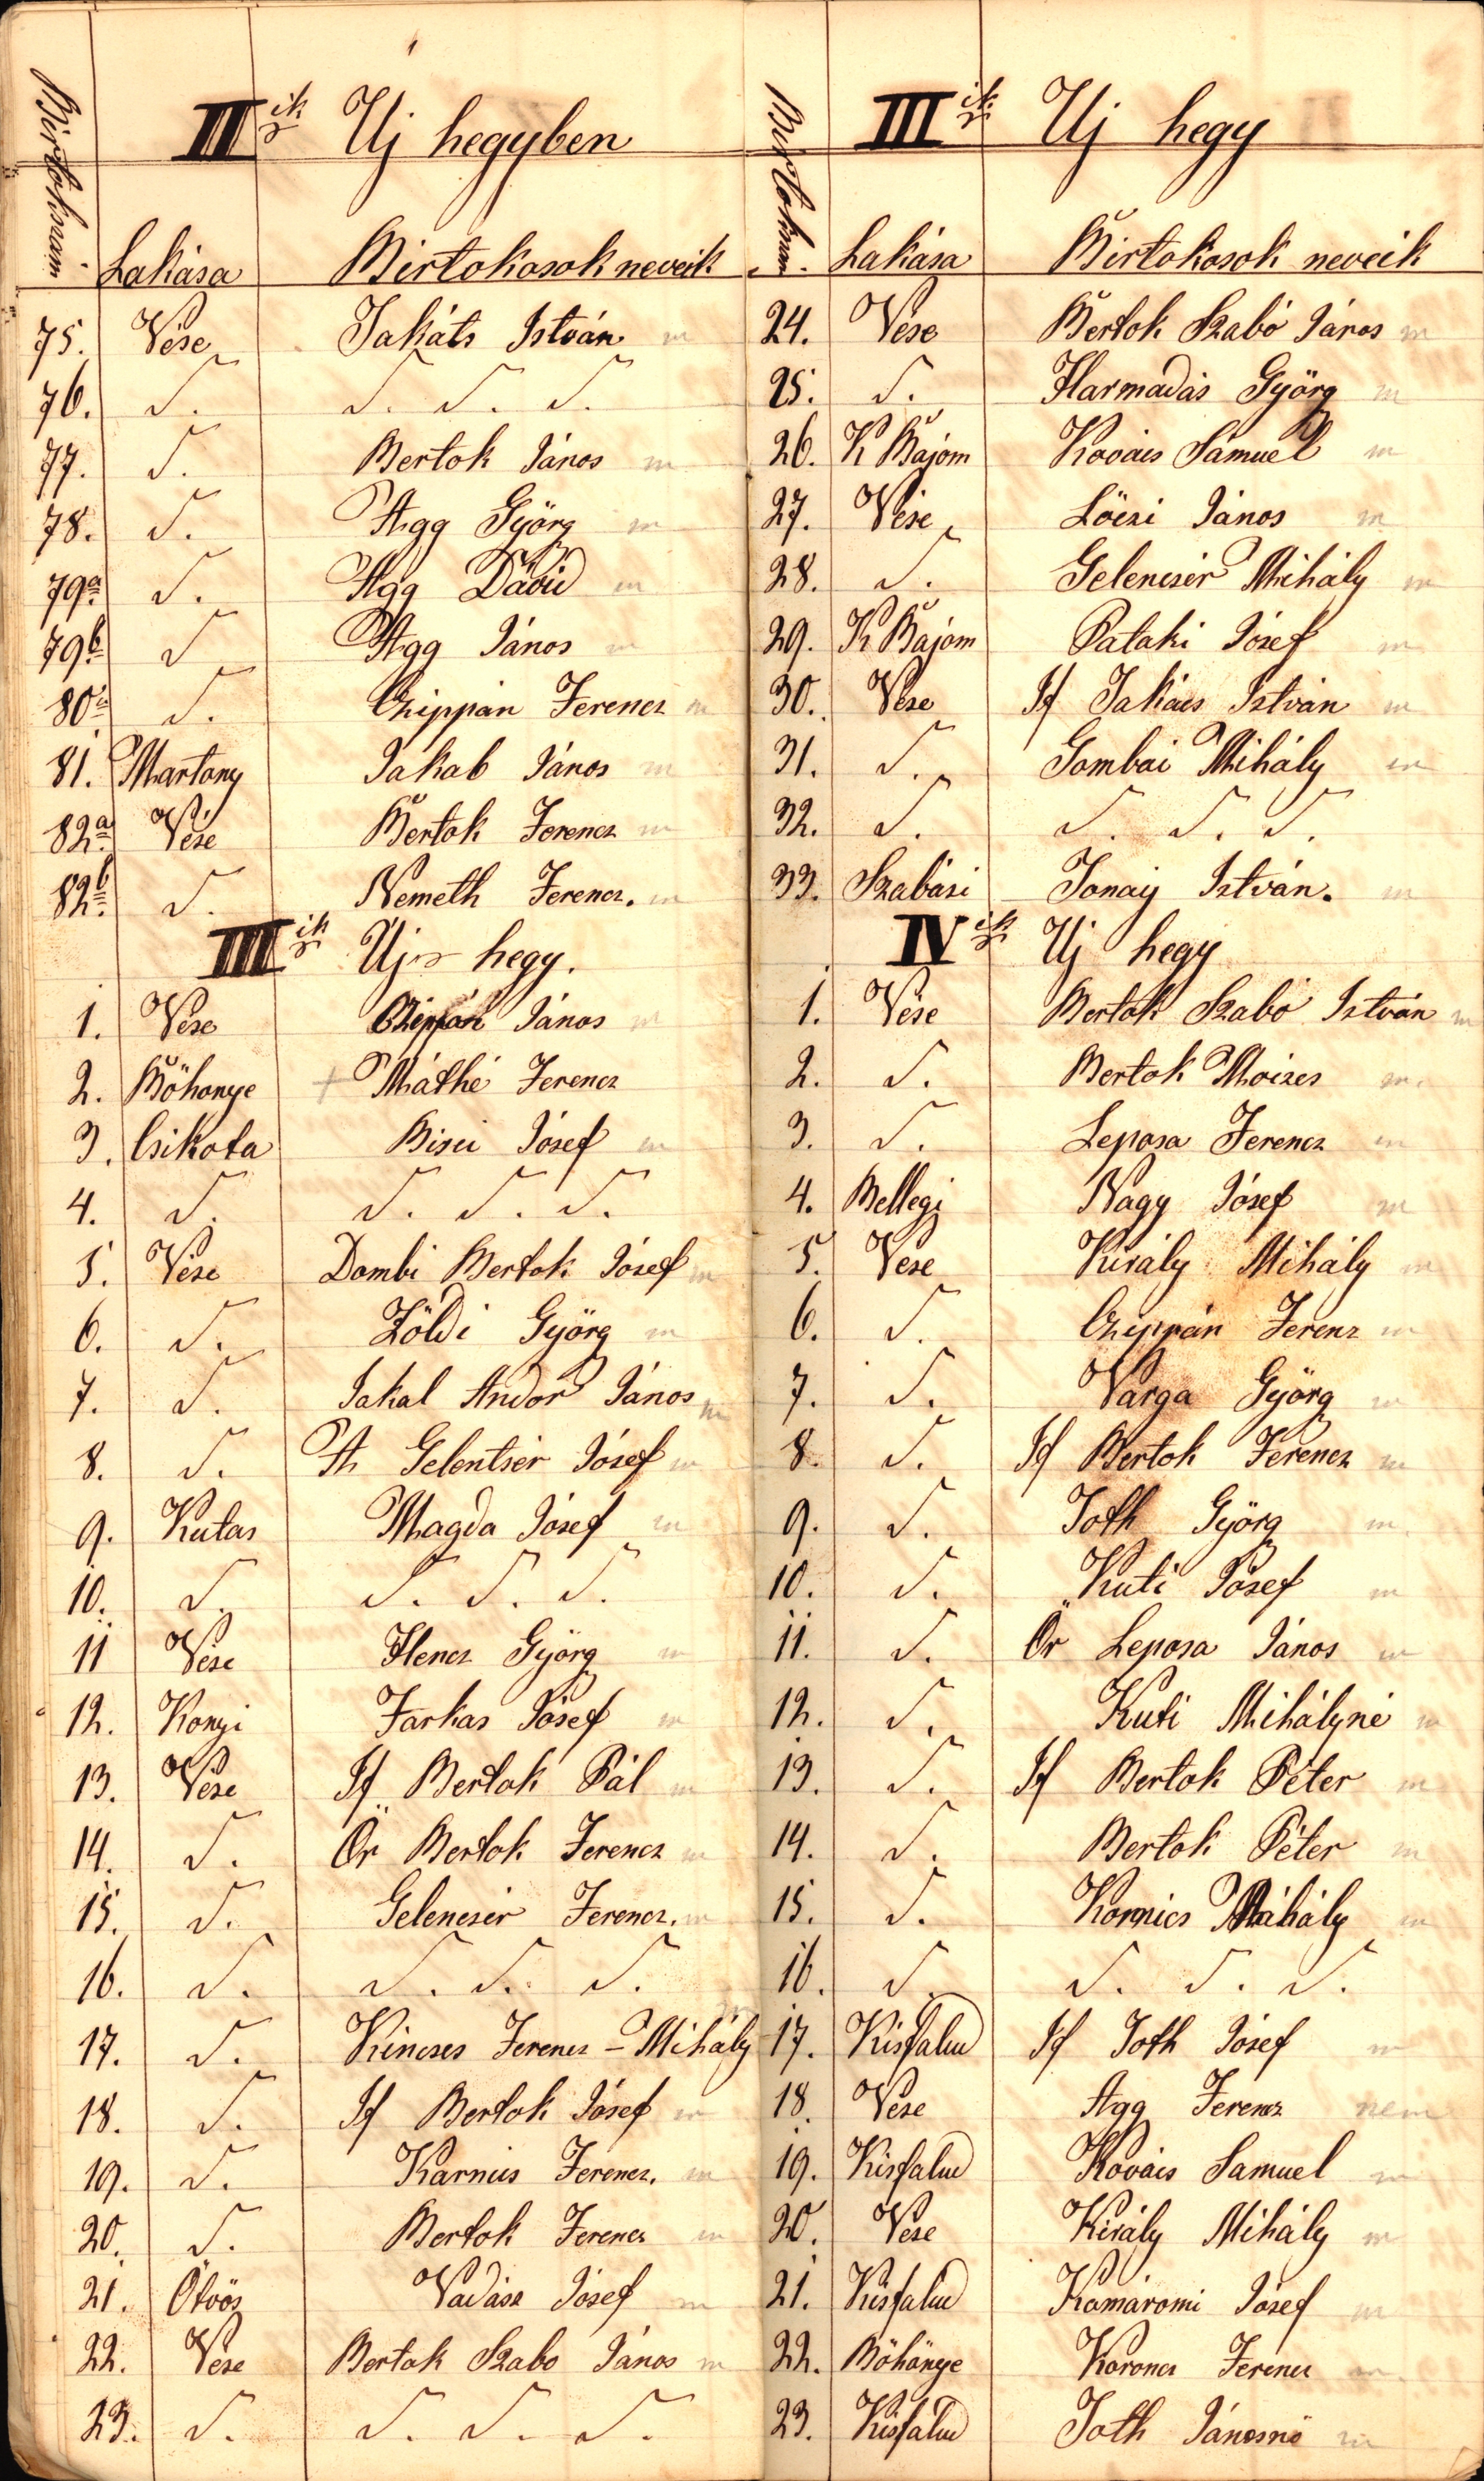 II ik Uj hegyben
Birtokszám. Lakása Birtokosok neveik
75. Vése Takáts István m
76. D. D. D. D.
77. D. Bertok János m
78. D. Agg Györg m
79a D. Agg Dávid m
79b D Agg János m
80a D. Czippán Ferencz m
81. Martony Jakab János m
82a Vése Bertok Ferencz m
82b D. Nemeth Ferencz. m
III ik Uj hegy.
1. Vése Czippán János m
2. Böhonye + Máthé Ferencz
3. Csikota Bisei Jósef m
4. D. D. D. D.
5. Vése Dombi Bertok Jósef m
6. D. Zöldi Györg m
7. D. Jakal Andor János m
8. D. A Gelentsér Jósef m
9. Kutas Magda Jósef m
10. D. D. D. D.
11 Vése Hencz Györg m
12. Konyi Farkas Jósef m
13. Vése If Bertok Pál m
14. D. Ör Bertok Ferencz m
15. D. Gelencsér Ferencz. m
16. D. D. D. D.
17. D. Kincses Ferencz - Mihály m
18. D. If Bertok Jósef m
19. D. Karnics Ferencz. m
20. D. Bertok Ferencz m
21. Ötvös Vadász Jósef m
22. Vése Bertok Szabo János m
23. D. D. D. D.
III ik Uj hegy
Birtokszám. Lakása Birtokosok neveik
24. Vése Bertok Szabó János m
25. D. Harmadás Györg m
26. K Bajom Kovács Sámuel m
27. Vése Löczi János m
28. D. Gelencsér Mihály m
29. K Bajom Pataki Jósef m
30. Vése If Takács István m
31. D. Gombai Mihály m
32. D. D. D. D.
33. Szabási Tonaÿ István. m
IV ik Uj hegy
1. Vése Bertok Szabó István m
2. D. Bertok Moizes m.
3. D. Leposa Ferencz m
4. Bellegi Nagy Jósef m
5. Vése Király Mihály m
6. D. Czippán Ferenz m
7. D. Varga Györg m
8. D. If Bertok Ferencz m
9. D. Toth Györg m.
10. D. Kuti Jósef m
11. D. Ör Leposa János m
12. D. Kuti Mihályné m
13. D. If Bertok Péter m
14. D. Bertok Péter m
15. D. Kornics Mihály m
16. D. D. D. D.
17. Kisfalud If Toth Jósef m
18. Vése Agg Ferencz nem
19. Kisfalud Kovács Samuel m
20. Vése Király Mihály m
21. Kisfalud Komáromi Jósef m
22. Böhönye Koroncz Ferencz m.
23. Kisfalud Toth Jánosné m